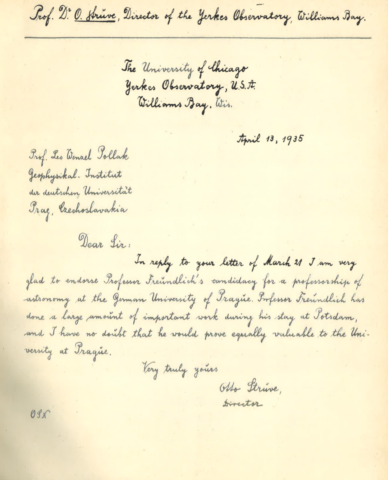 Prof. Dr O. Strüve, Director of the Yerkes Observatory, Williams Bay.
The University of Chicago
Yerkes Observatory, U.S.A.
Williams Bay, Wis.
April 13, 1935
Prof. Leo Wenzel Pollak
Geophysikal. Institut
der deutschen Universität
Prag, Czechoslavakia
Dear Sir:
In reply to your letter of March 21 I am very
glad to endorse Professor Freündlich's candidacy for a professorship of
astronomy at the German University of Pragüe. Professor Freündlich has
done a large amount of important work during his day at Potsdam,
and I have no doubt that he would prove equally valuable to the Uni-
versity at Pragüe.
Very truly yours
Otto Strüve,
Director